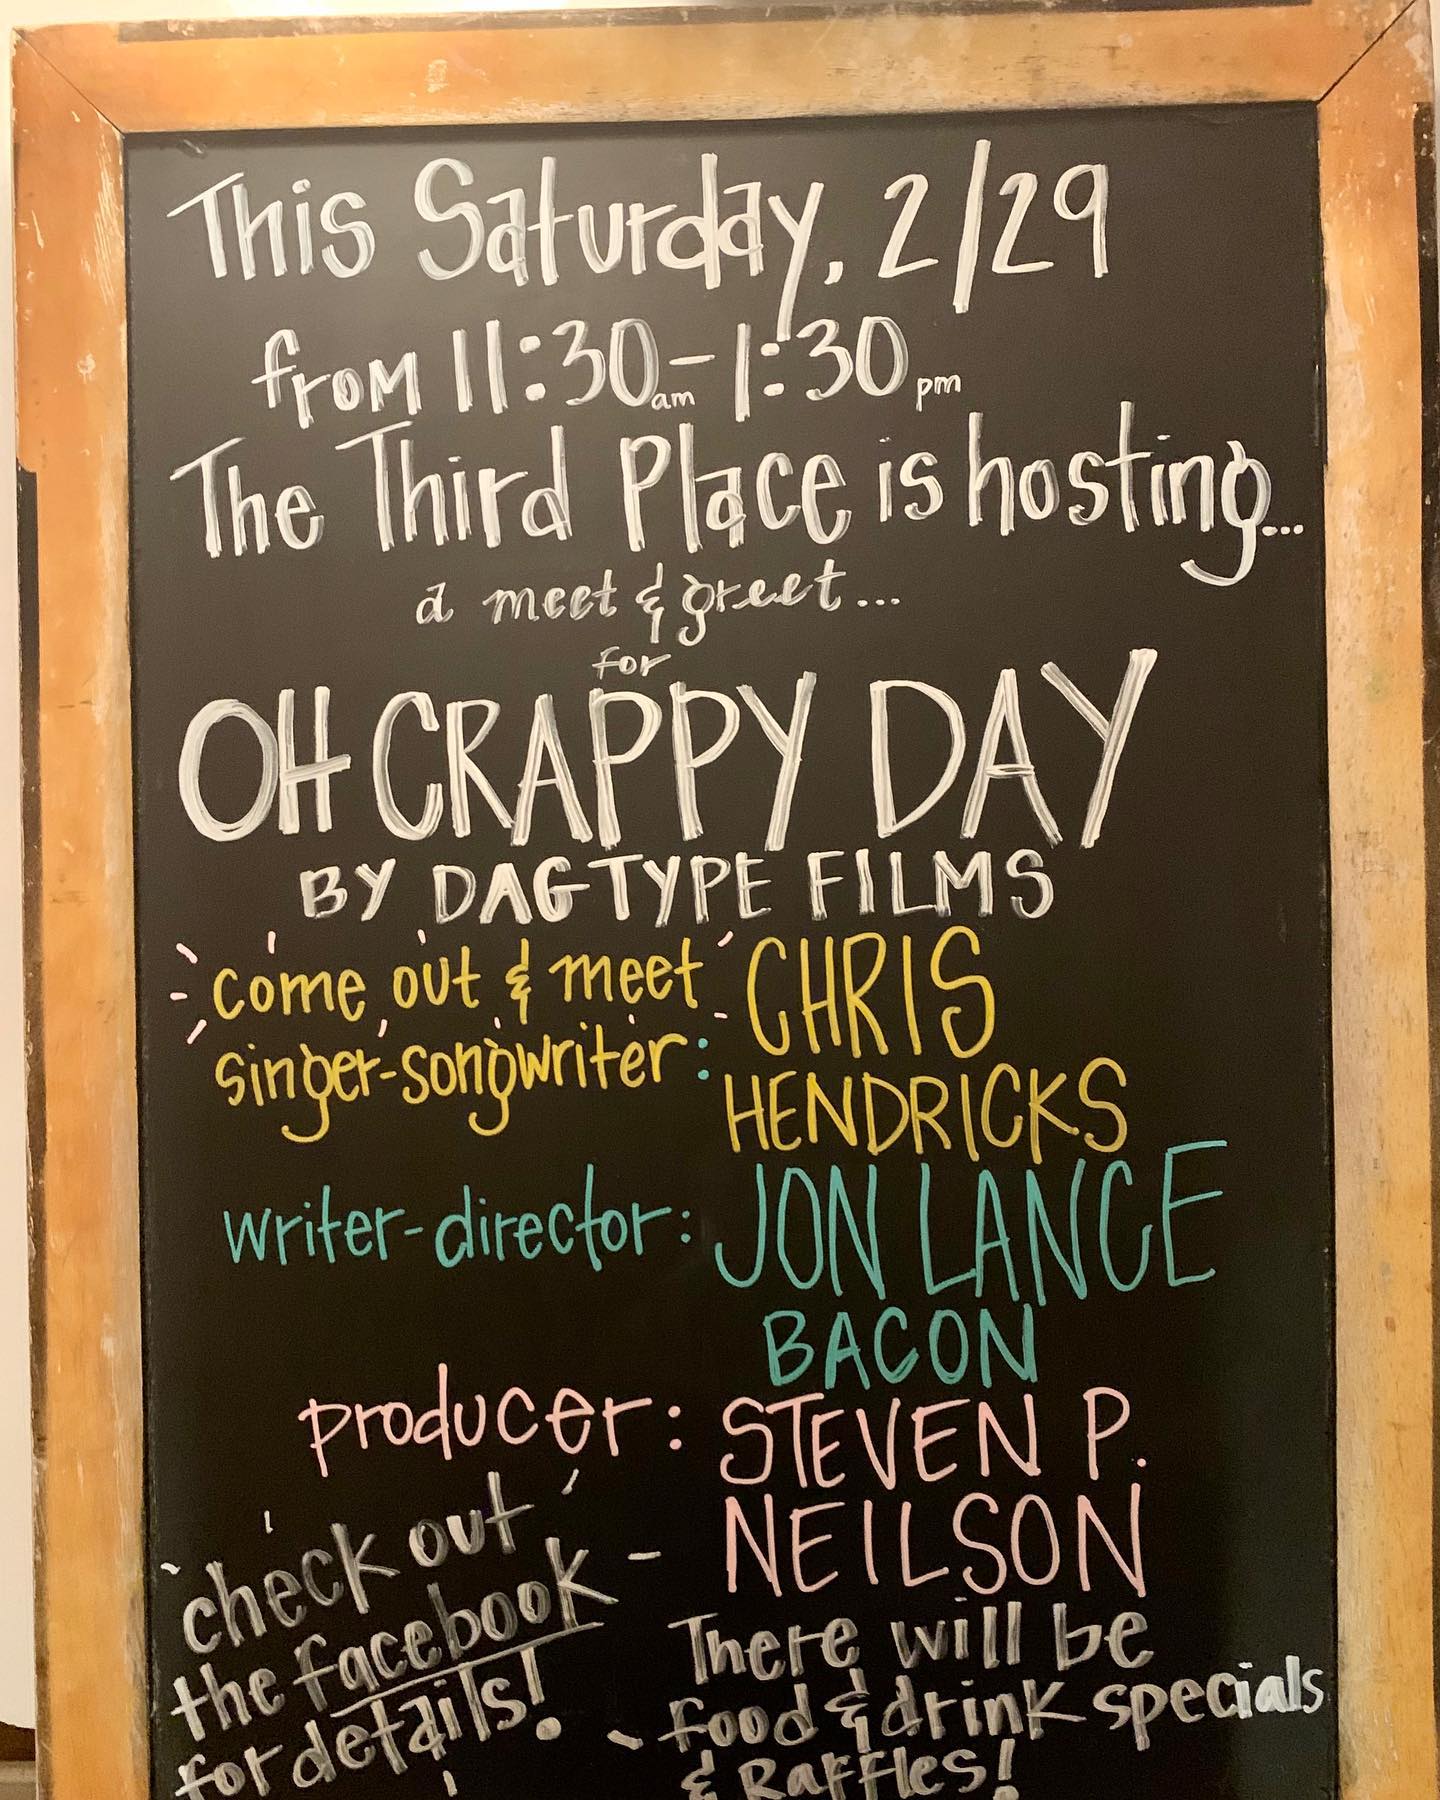 This Saturday, 2/29
from 11:30am-1:30pm
The Third Place is hosting...
a meet & greet...
for
OH CRAPPY DAY
BY DAGTYPE FILMS
come out & meet
singer-songwriter: CHRIS
HENDRICKS
writer-director: JON LANCE
BACON
producer: STEVEN P.
NEILSON
check out
the facebook
for details!
There will be
food & drink specials
& Raffles!